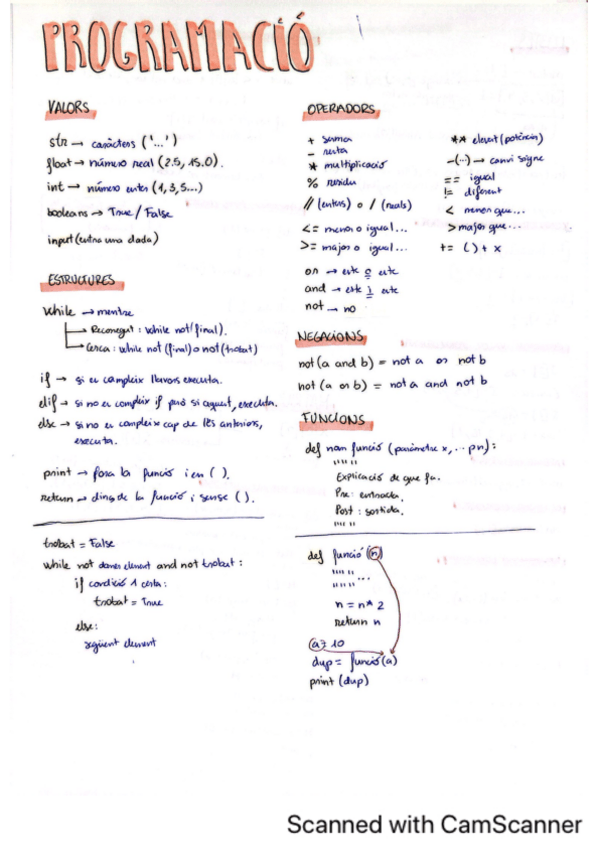 PROGRAMACIÓ
VALORS
str → caràcters ('...')
float → número real (2.5, 15.0).
int → número enter (1, 3, 5...)
booleans → True / False
input (entra una dada)
ESTRUCTURES
while → mentre
Recorregut : while not (final).
Cerca : while not (final) o not (trobat)
if → si es compleix llavors executa.
elif → si no es compleix if però si aquest, executa.
else → si no es compleix cap de les anteriors,
executa.
print → fora la funció i en ( ).
return → dins de la funció i sense ( ).
trobat = False
while not darrer element and not trobat :
if condició 1 certa :
trobat = True
else :
següent element
OPERADORS
+ suma
- resta
* multiplicació
% residu
// (enters) o / (reals)
<= menor o igual...
>= major o igual...
or → este o este
and → este i este
not → no
** elevat (potència)
-(...) → canvi signe
== igual
!= diferent
< menor que...
> major que...
+= ( ) + x
NEGACIONS
not (a and b) = not a or not b
not (a or b) = not a and not b
FUNCIONS
def nom funció (paràmetre x, ... pn) :
""""
Explicació de que fa.
Pre : entrada.
Post : sortida.
""""
def funció (n)
""""
"""" ...
n = n * 2
return n
a = 10
dup = funció (a)
print (dup)
Scanned with CamScanner